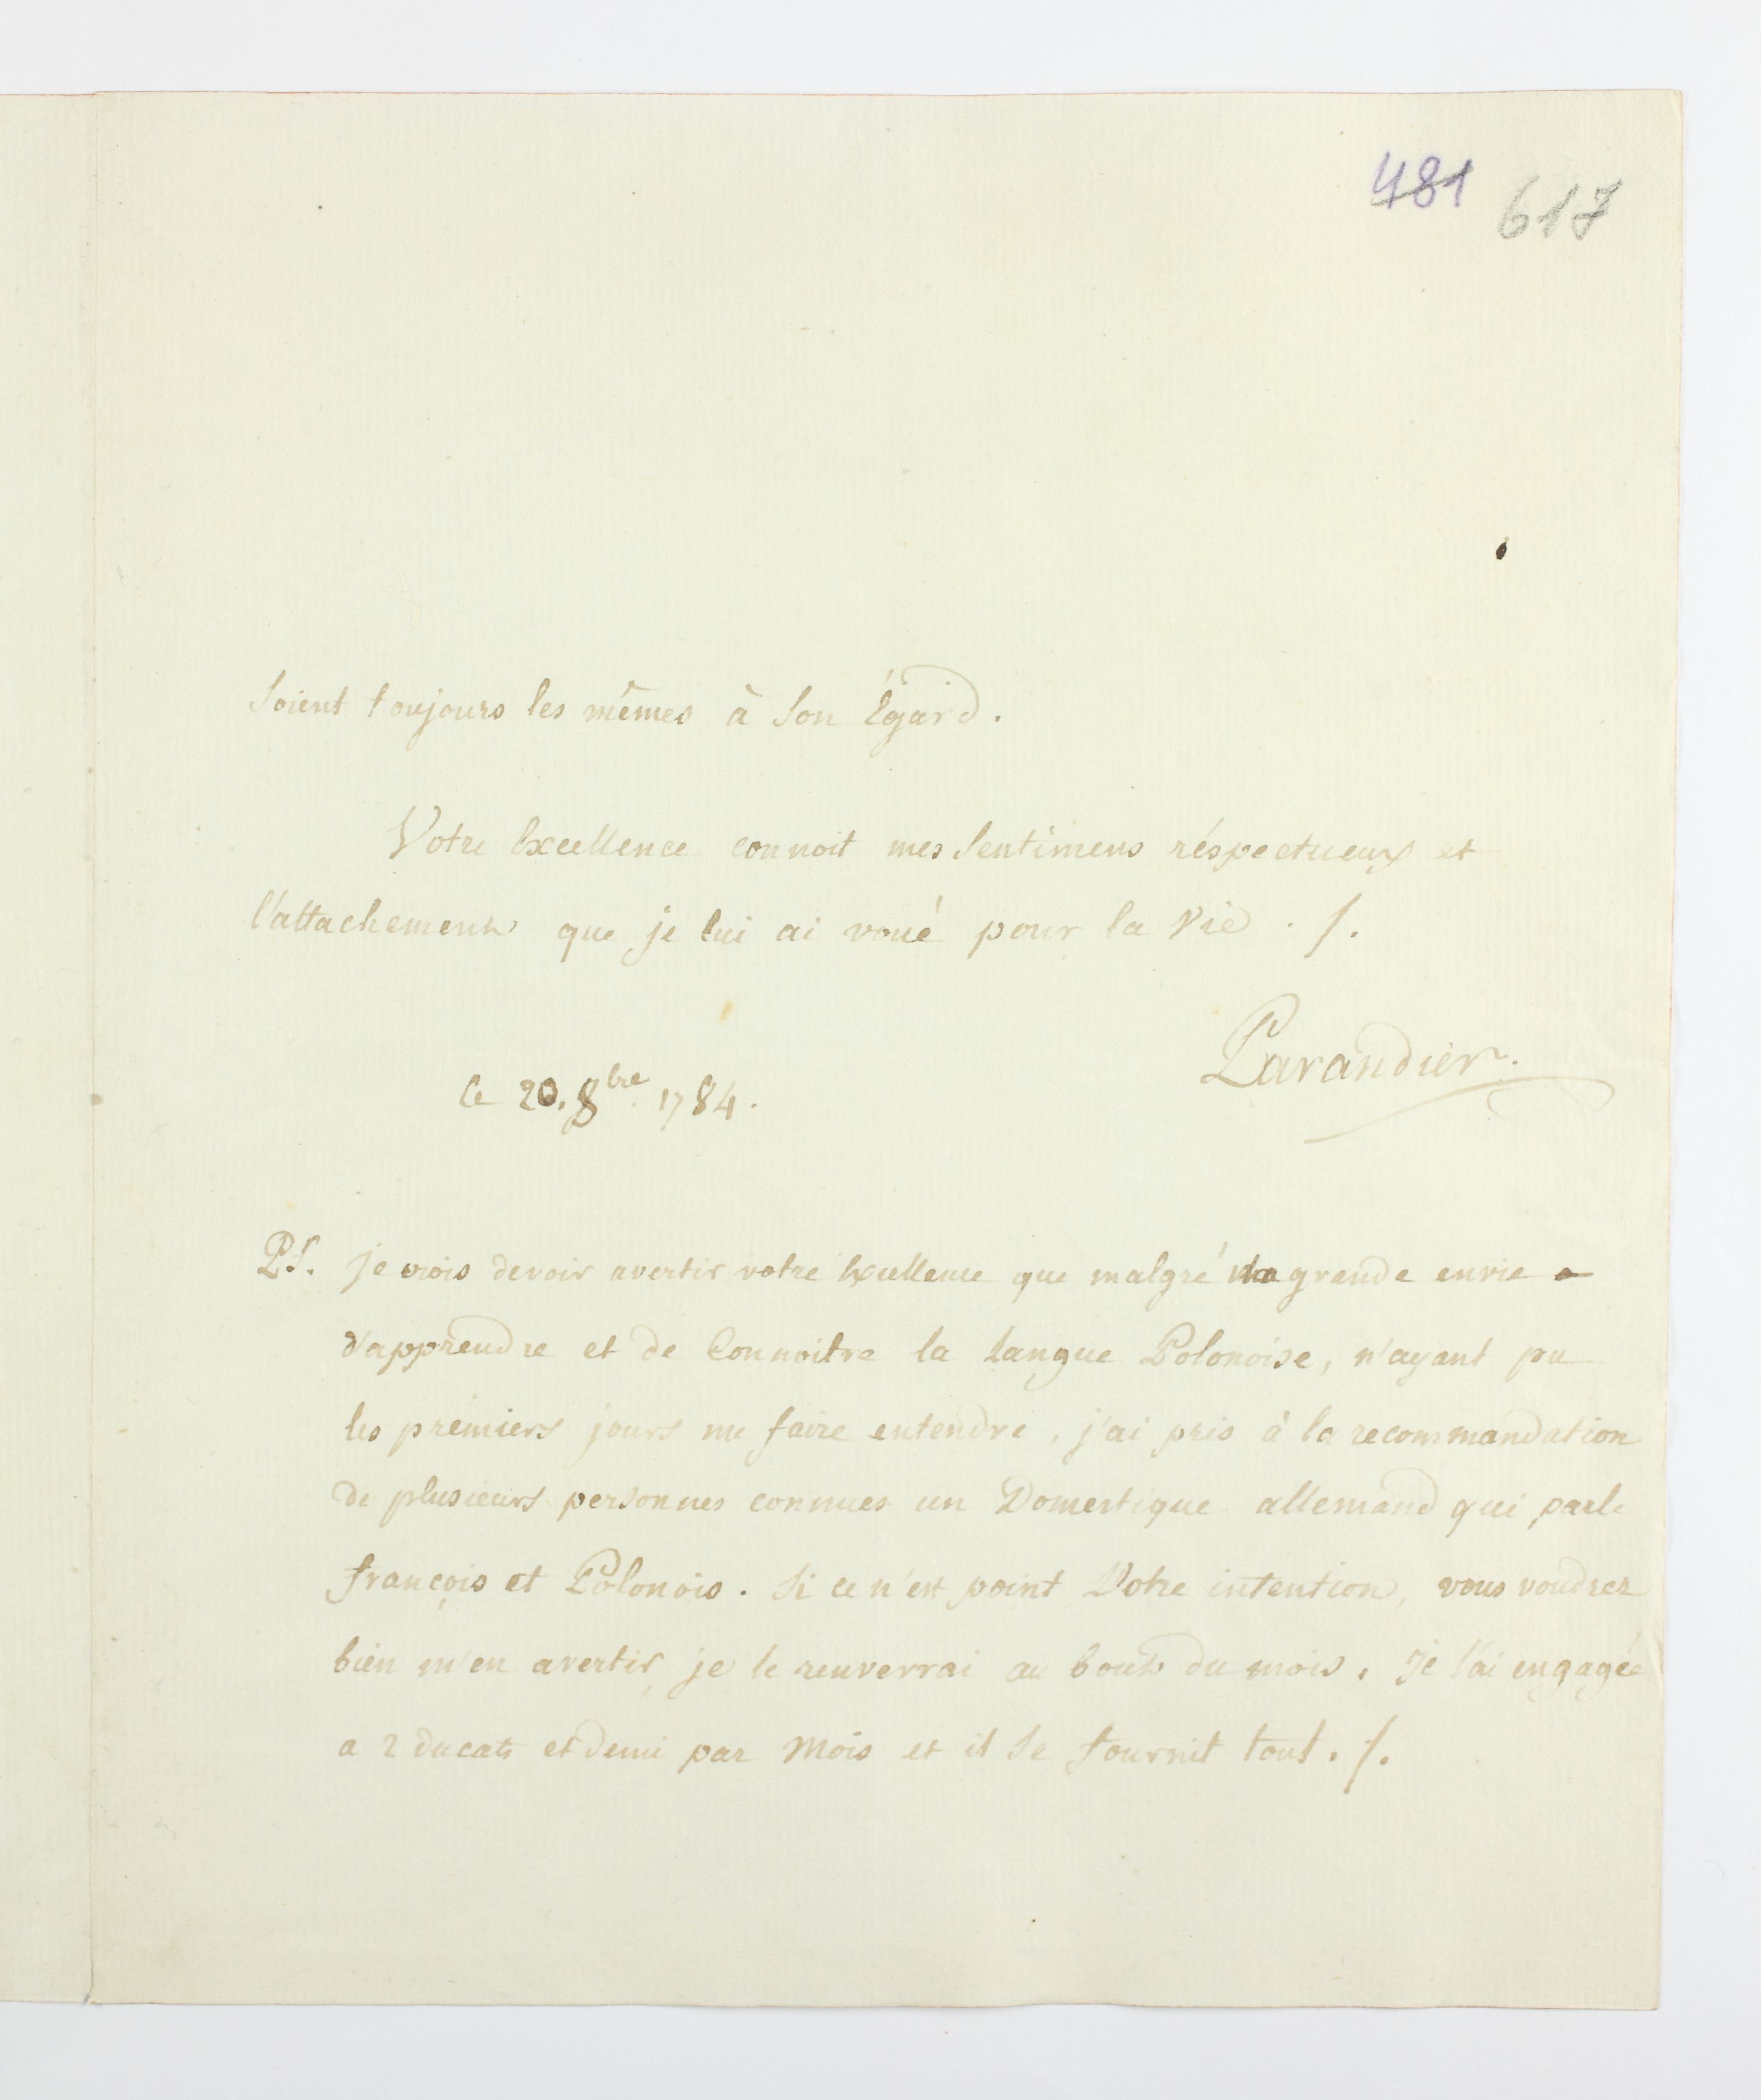 481 617
soient toujours les mêmes à son Égard.
Votre Excellence connoit mes sentimens réspectueux et
l'attachement que je lui ai voué pour la vie . /.
Parandier.
le 20. 8bre 1784.
PS. je crois devoir avertir votre Excellence que malgré ma grande envie
d'apprendre et de Connoitre la Langue Polonoise, n'ayant pu
les prémiers jours me faire entendre, j'ai pris à la recommandation
de plusieurs personnes connues un Domestique allemand qui parle
françois et Polonois. Si ce n'est point Votre intention, vous voudrez
bien m'en avertir, je le renverrai au bout du mois. Je l'ai engagée
a 2 ducats et demi par Mois et il se fournit tout. /.